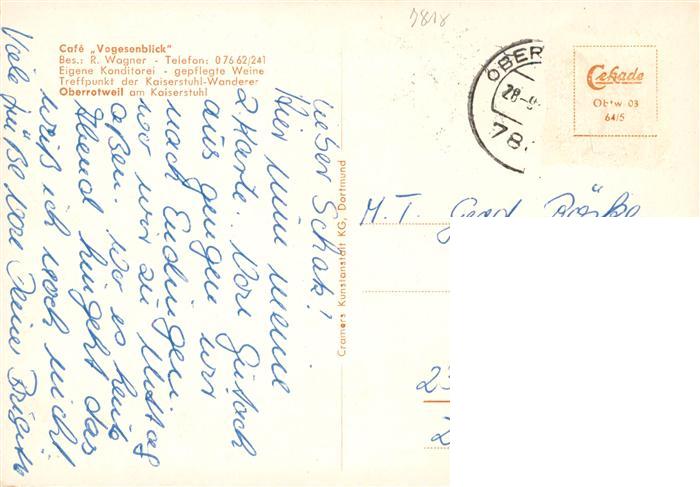 7818
Café „Vogesenblick"
Bes.: R. Wagner - Telefon: 0 76 62/241
Eigene Konditorei - gepflegte Weine
Treffpunkt der Kaiserstuhl-Wanderer
Oberrotweil am Kaiserstuhl
OBER
28.-9.
78
Cekade
Obtw 03
64/5
Cramers Kunstanstalt KG, Dortmund
Lieber Schatz!
Hier nun meine
2. Karte. Von
aus gingen wir
nach Endingen
wo wir zu Mittag
aßen. Wo es heute
Abend hingeht das
weiß ich noch nicht
Viele Grüße von Deiner Brigitte
H. T. Gerd
23
2